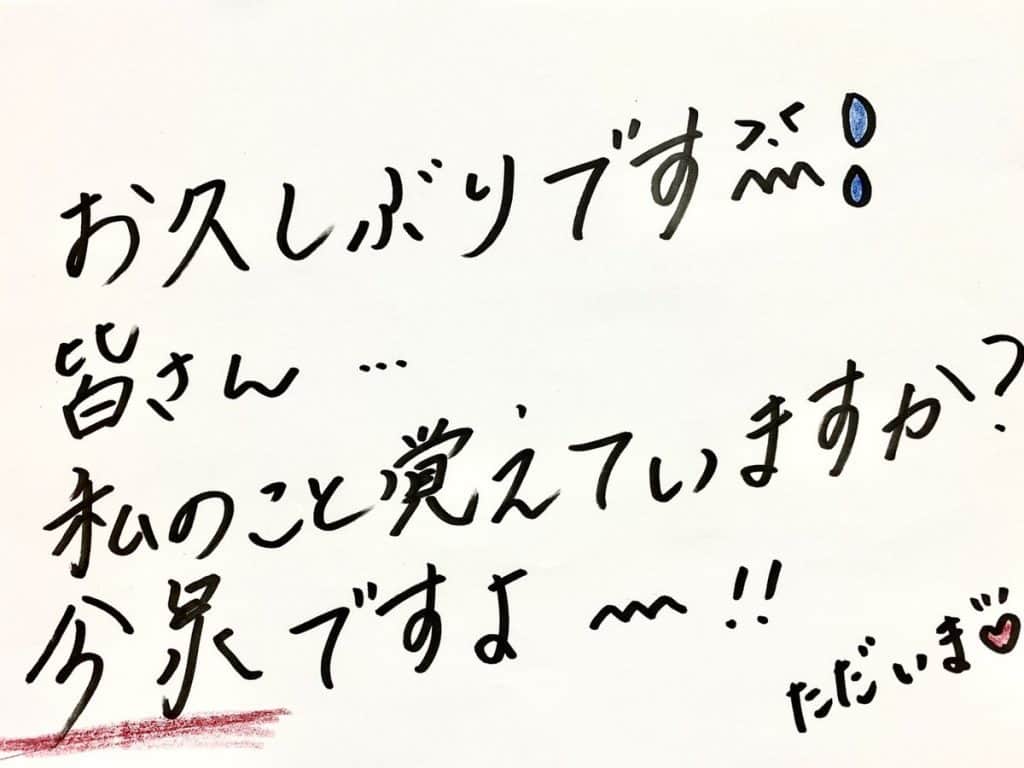 お久しぶりです〰!
皆さん…
私のこと覚えていますか?
今泉ですよ〰!!
ただいま♡